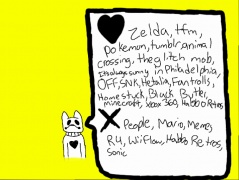 Zelda, tfm,
pokemon, tumblr, animal
crossing, the glitch mob,
its always sunny in Philadelphia,
OFF, SNK, Hetalia, Fantrolls,
Homestuck, Black Butler,
minecraft, xbox 360, Habbo Retros
People, Mario, Memes
R4, Wii Flow, Habbo Retros,
Sonic